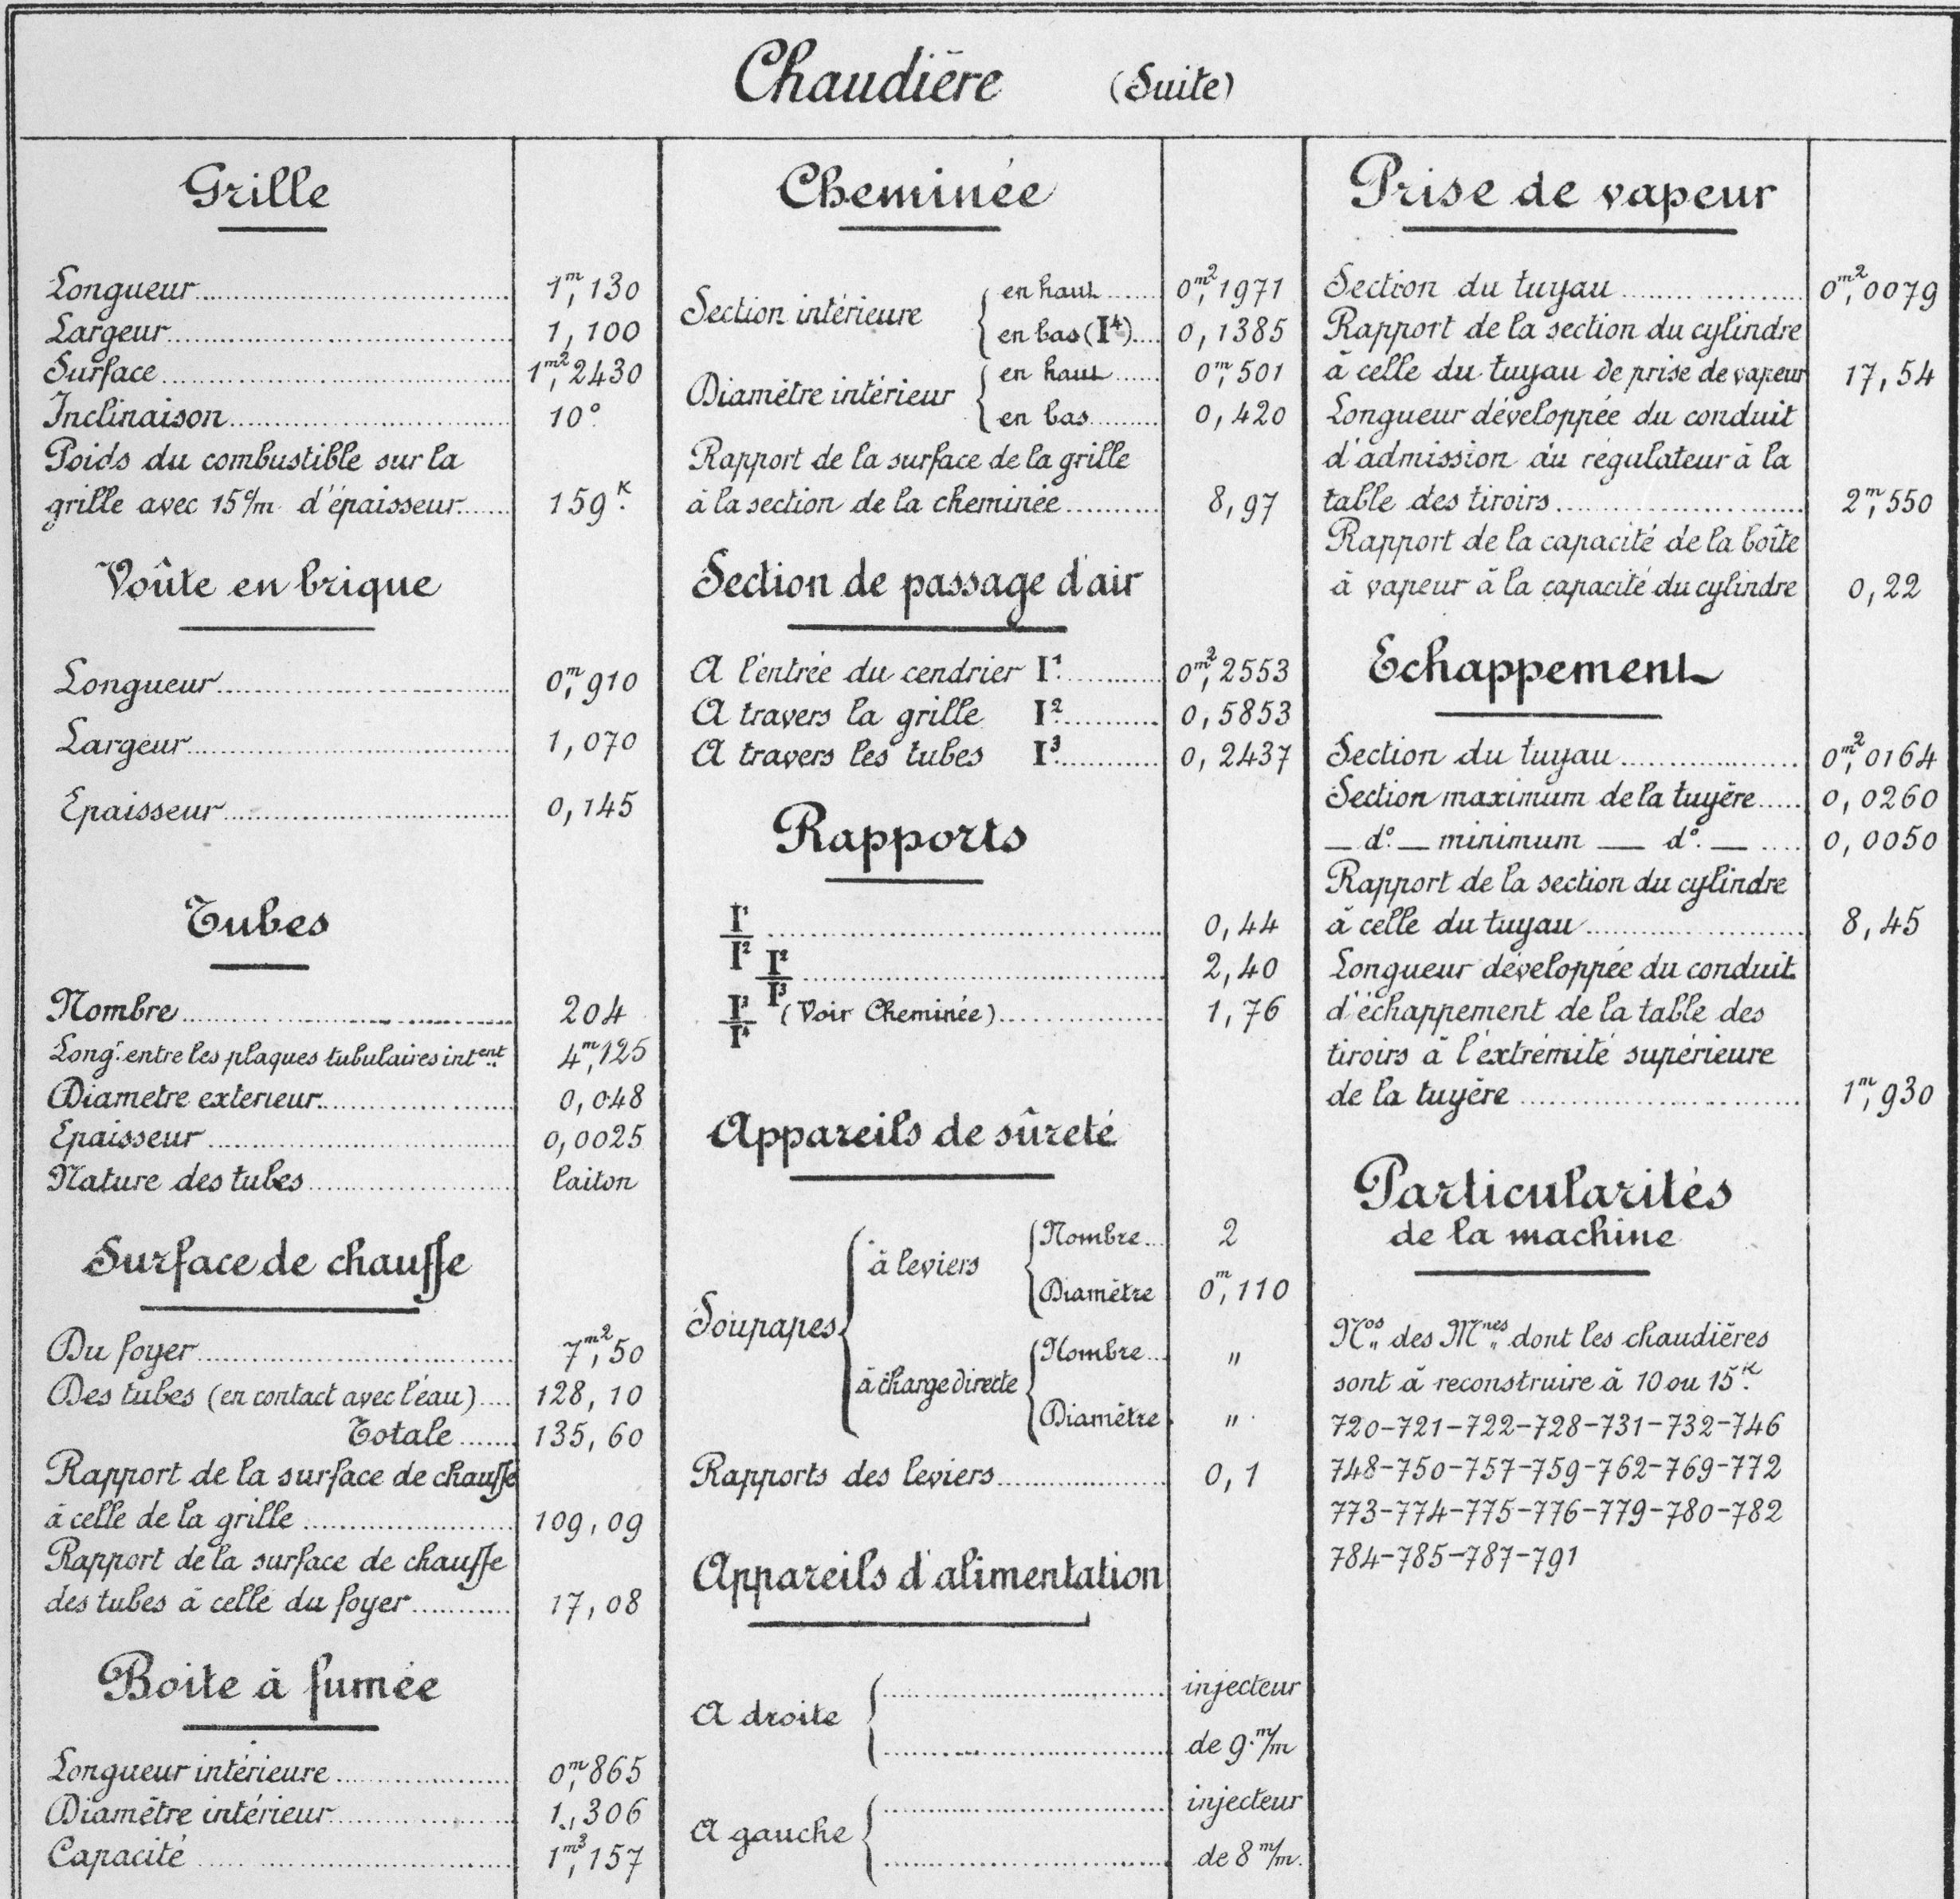 Chaudière (Suite)
Grille
Longueur 1m,130
Largeur 1,100
Surface 1m2,2430
Inclinaison 10°
Poids du combustible sur la
grille avec 15c/m d'épaisseur 159K.
Voûte en brique
Longueur 0m,910
Largeur 1,070
Epaisseur 0,145
Tubes
Nombre 204
Longr. entre les plaques tubulaires intent. 4m,125
Diametre exterieur 0,048
Epaisseur 0,0025
Nature des tubes laiton
Surface de chauffe
Du foyer 7m2,50
Des tubes (en contact avec l'éau) 128,10
Totale 135,60
Rapport de la surface de chauffe
à celle de la grille 109,09
Rapport de la surface de chauffe
des tubes à celle du foyer 17,08
Boite à fumée
Longueur intérieure 0m,865
Diamètre intérieur 1,306
Capacité 1m3,157
Cheminée
Section intérieure { en haut 0m2,1971
en bas (I4) 0,1385
Diamètre intérieur { en haut 0m,501
en bas 0,420
Rapport de la surface de la grille
à la section de la cheminée 8,97
Section de passage d'air
A l'entrée du cendrier I1. 0m2,2553
A travers la grille I2. 0,5853
A travers les tubes I3. 0,2437
Rapports
I1/I2 0,44
I2/I3 2,40
I3/I4 (Voir Cheminée) 1,76
Appareils de sûreté
Soupapes { à leviers { Nombre 2
Diamètre 0m,110
à charge directe { Nombre "
Diamètre "
Rapports des leviers 0,1
Appareils d'alimentation
A droite { injecteur
de 9m/m
A gauche { injecteur
de 8m/m.
Prise de vapeur
Section du tuyau 0m2,0079
Rapport de la section du cylindre
à celle du tuyau de prise de vapeur 17,54
Longueur développée du conduit
d'admission du régulateur à la
table des tiroirs 2m,550
Rapport de la capacité de la boîte
à vapeur à la capacité du cylindre 0,22
Echappement
Section du tuyau 0m2,0164
Section maximum de la tuyère 0,0260
— do. — minimum — do. — 0,0050
Rapport de la section du cylindre
à celle du tuyau 8,45
Longueur développée du conduit
d'échappement de la table des
tiroirs à l'extrémité supérieure
de la tuyère 1m,930
Particularités
de la machine
Nos. des Mnes. dont les chaudières
sont à reconstruire à 10 ou 15K.
720-721-722-728-731-732-746
748-750-757-759-762-769-772
773-774-775-776-779-780-782
784-785-787-791